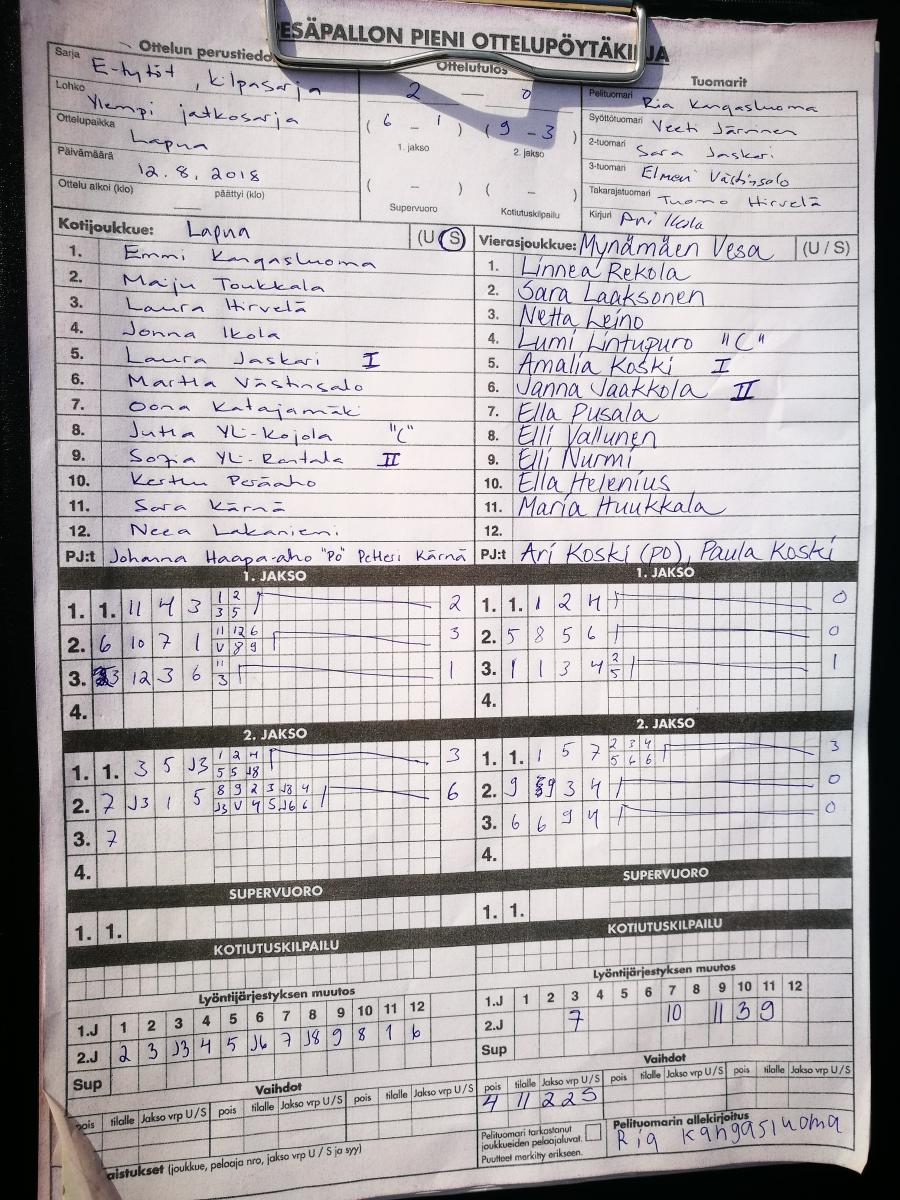 PESÄPALLON PIENI OTTELUPÖYTÄKIRJA
Ottelun perustiedot
Sarja E-tytöt, kilpasarja
Lohko Ylempi jatkosarja
Ottelupaikka Lapua
Päivämäärä 12.8.2018
Ottelu alkoi (klo) — päättyi (klo)
Ottelutulos
2 — 0
( 6 – 1 ) ( 9 – 3 )
1. jakso 2. jakso
( – ) ( – )
Supervuoro Kotiutuskilpailu
Tuomarit
Pelituomari Ria Kangasluoma
Syöttötuomari Veeti Järvinen
2-tuomari Sara Jaskari
3-tuomari Elmeri Västinsalo
Takarajatuomari Tuomo Hirvelä
Kirjuri Ari Ikola
Kotijoukkue: Lapua (U S)
1. Emmi Kangasluoma
2. Maiju Toukkala
3. Laura Hirvelä
4. Jonna Ikola
5. Laura Jaskari I
6. Martta Västinsalo
7. Oona Katajamäki
8. Jutta Yli-Kojola "C"
9. Sofia Yli-Rantala II
10. Kerttu Peräaho
11. Sara Kärnä
12. Neea Lakaniemi
PJ:t Johanna Haapa-aho "PO" Petteri Kärnä
Vierasjoukkue: Mynämäen Vesa (U / S)
1. Linnea Rekola
2. Sara Laaksonen
3. Netta Leino
4. Lumi Lintupuro "C"
5. Amalia Koski I
6. Janna Jaakkola II
7. Ella Pusala
8. Elli Vallunen
9. Elli Nurmi
10. Ella Helenius
11. Maria Huukkala
12.
PJ:t Ari Koski (PO), Paula Koski
1. JAKSO
1. 1. 11 4 3 1 2 2
3 5
2. 6 10 7 1 11 12 6 3
V 8 9
3. 3 12 3 6 11 1
3
4.
1. JAKSO
1. 1. 1 2 4 0
2. 5 8 5 6 0
3. 1 1 3 4 2 1
5
4.
2. JAKSO
1. 1. 3 5 J3 1 2 4 3
5 5 J8
2. 7 J3 1 5 8 9 2 3 J8 4 6
J3 V 4 5 J6 6
3. 7
4.
2. JAKSO
1. 1. 1 5 7 2 3 4 3
5 6 6
2. 9 9 3 4 0
3. 6 6 9 4 0
4.
SUPERVUORO
1. 1.
SUPERVUORO
1. 1.
KOTIUTUSKILPAILU
KOTIUTUSKILPAILU
Lyöntijärjestyksen muutos
1.J 1 2 3 4 5 6 7 8 9 10 11 12
2.J 2 3 J3 4 5 J6 7 J8 9 8 1 6
Sup
Lyöntijärjestyksen muutos
1.J 1 2 3 4 5 6 7 8 9 10 11 12
2.J 7 10 11 3 9
Sup
Vaihdot
pois tilalle Jakso vrp U/S pois tilalle Jakso vrp U/S pois tilalle Jakso vrp U/S
Vaihdot
pois tilalle Jakso vrp U/S pois tilalle Jakso vrp U/S pois tilalle Jakso vrp U/S
4 11 2 2 S
Pelituomari tarkastanut
joukkueiden pelaajaluvat.
Puutteet merkitty erikseen.
Pelituomarin allekirjoitus
Ria Kangasluoma
aistukset (joukkue, pelaaja nro, jakso vrp U / S ja syy)